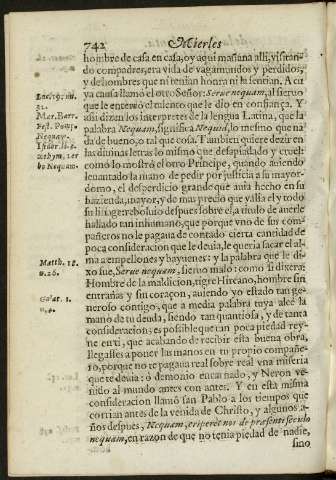 742 Mierles
hombre de casa en casa, oy aqui mañana alli, visitan-
do compadres, era vida de vagamundos y perdidos,
y de hombres que ni tenian honra ni la sentian. A cu
ya causa llamó el otro Señor: Serue nequam, al sieruo
que le enterró el talento que le dio en confiança. Y
assi dizen los interpretes de la lengua Latina, que la
palabra Nequam, significa Nequid, lo mismo que na
da de bueno, o tal cosa. Tambien quiere dezir en
las diuinas letras lo mismo que desapiadado y cruel:
como lo mostró el otro Principe, quando auiendo
leuantado la mano de pedir por justicia a su mayor-
domo, el desperdicio grande que auia hecho en su
hazienda, mayor, y de mas precio que valia el y todo
su linage: reboluio despues sobre el, a titulo de auerle
hallado tan inhumano, que porque vno de sus com-
pañeros no le pagaua de contado cierta cantidad de
poca consideracion que le deuia, le queria sacar el al-
ma a empellones y bayuenes: y la palabra que le di-
xo fue, Serue nequam, sieruo malo: como si dixera:
Hombre de la maldicion, tigre Hircano, hombre sin
entrañas y sin coraçon, auiendo yo estado tan ge-
neroso contigo, que a media palabra tuya alcè la
mano de tu deuda, siendo tan quantiosa, y de tanta
consideracion: es possible que tan poca piedad rey-
ne en ti, que acabando de recibir esta buena obra,
llegasses a poner las manos en tu propio compañe-
ro, porque no te pagaua real sobre real vna miseria
que te deuia? ò demonio encarnado, y Neron ve-
nido al mundo antes con antes. Y en esta misma
consideracion llamò san Pablo a los tiempos que
corrian antes de la venida de Christo, y algunos a-
ños despues, Nequam, eriperet nos de præsenti seculo
nequam, en razon de que no tenia piedad de nadie,
sino
Luc. 19. nu.
22.
Mar. Barr.
Fest. Pomp.
Nequam.
Isidor. li. 8.
Matth. 18.
v. 26.
Galat. 1.
v. 4.